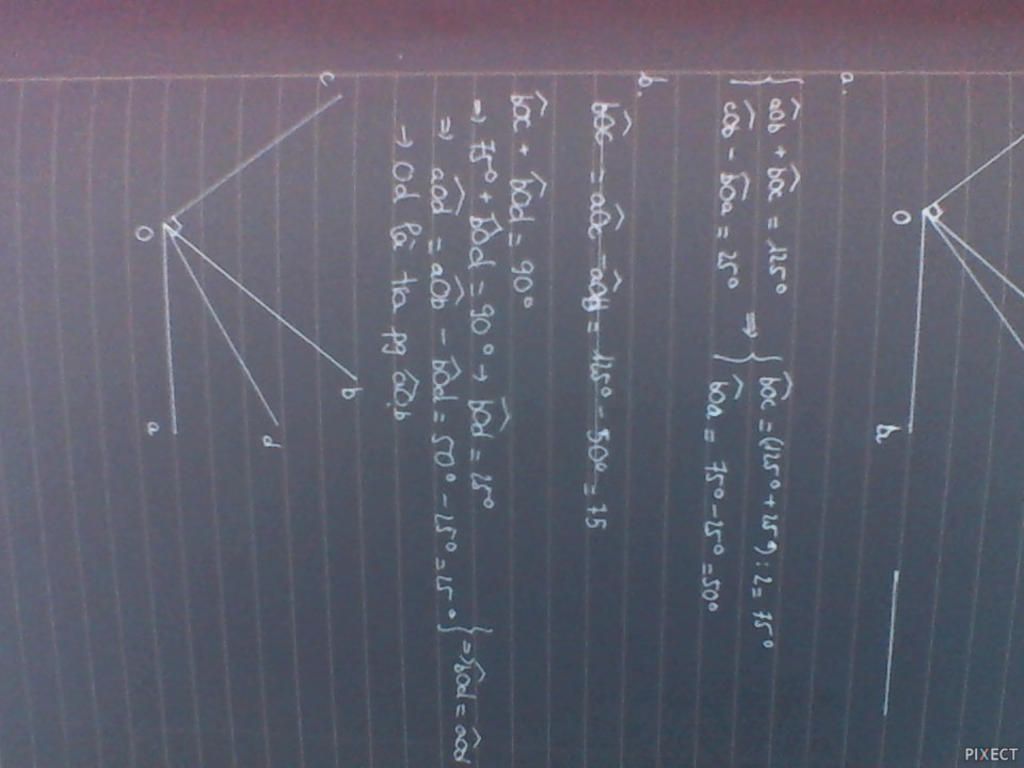 O
b
a.
{ aOb + bOc = 125°
cOb - bOa = 25°
⇒ { bOc = (125° + 25°) : 2 = 75°
bOa = 75° - 25° = 50°
b.
bOc = aOc - aOb = 125° - 50° = 75
bOc + bOd = 90°
→ 75° + bOd = 90° → bOd = 15°
⇒ aOd = aOb - bOd = 50° - 25° = 25° } => bOd = aOd
→ Od là tia pg aOb
c
O
b
d
a
PIXECT